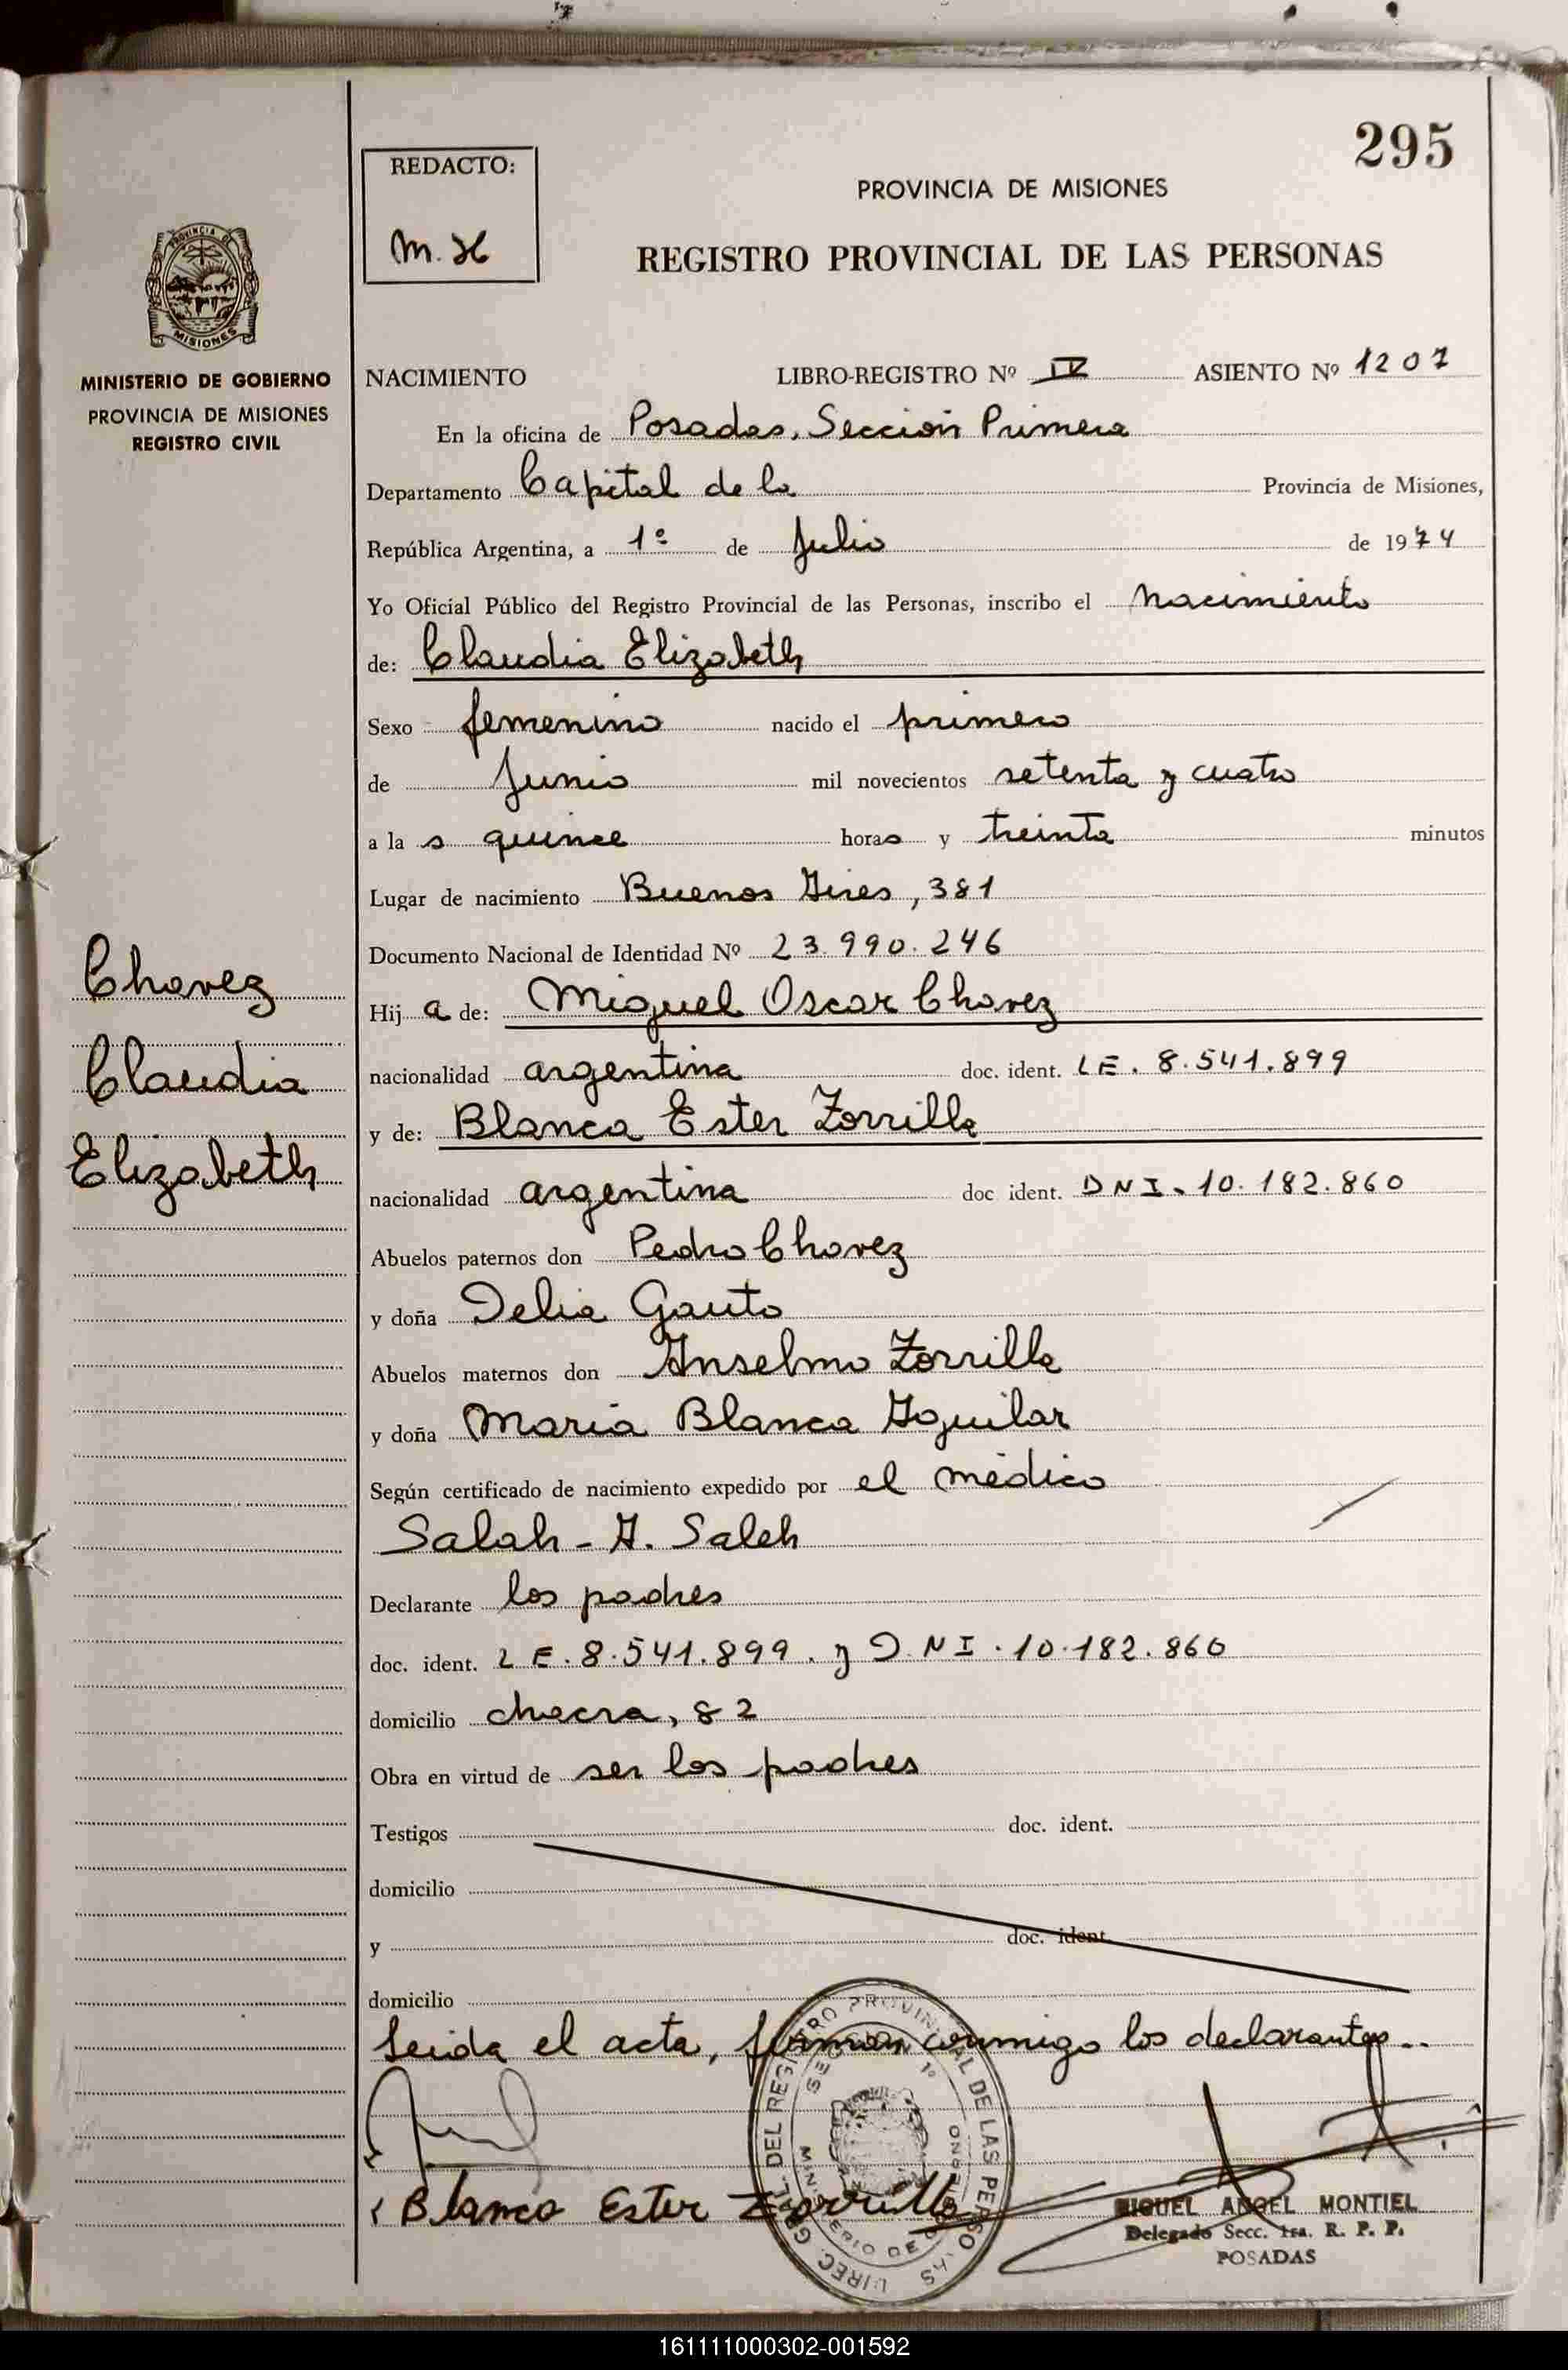 295
REDACTO:
M. H
PROVINCIA DE MISIONES
REGISTRO PROVINCIAL DE LAS PERSONAS
PROVINCIA DE
MISIONES
MINISTERIO DE GOBIERNO
PROVINCIA DE MISIONES
REGISTRO CIVIL
NACIMIENTO LIBRO-REGISTRO Nº IV ASIENTO Nº 1207
En la oficina de Posadas, Sección Primera
Departamento Capital de la Provincia de Misiones,
República Argentina, a 1º de Julio de 1974
Yo Oficial Público del Registro Provincial de las Personas, inscribo el nacimiento
de: Claudia Elizabeth
Sexo femenino nacido el primero
de Junio mil novecientos setenta y cuatro
a la s quince horas y treinta minutos
Lugar de nacimiento Buenos Aires, 381
Documento Nacional de Identidad Nº 23.990.246
Chavez
Hij a de: Miguel Oscar Chavez
Claudia
nacionalidad argentina doc. ident. LE. 8.541.899
y de: Blanca Ester Zorrilla
Elizabeth
nacionalidad argentina doc ident. DNI. 10.182.860
Abuelos paternos don Pedro Chavez
y doña Delia Gauto
Abuelos maternos don Anselmo Zorrilla
y doña Maria Blanca Aguilar
Según certificado de nacimiento expedido por el médico
Salah - A. Saleh
Declarante los padres
doc. ident. LE. 8.541.899. y D.NI. 10.182.860
domicilio chacra, 82
Obra en virtud de ser los padres
Testigos doc. ident.
domicilio
y doc. ident.
domicilio
Leida el acta, firman conmigo los declarantes..
Blanca Ester Zorrilla
MIGUEL ANGEL MONTIEL
Delegado Secc. 1ra. R. P. P.
POSADAS
161111000302-001592